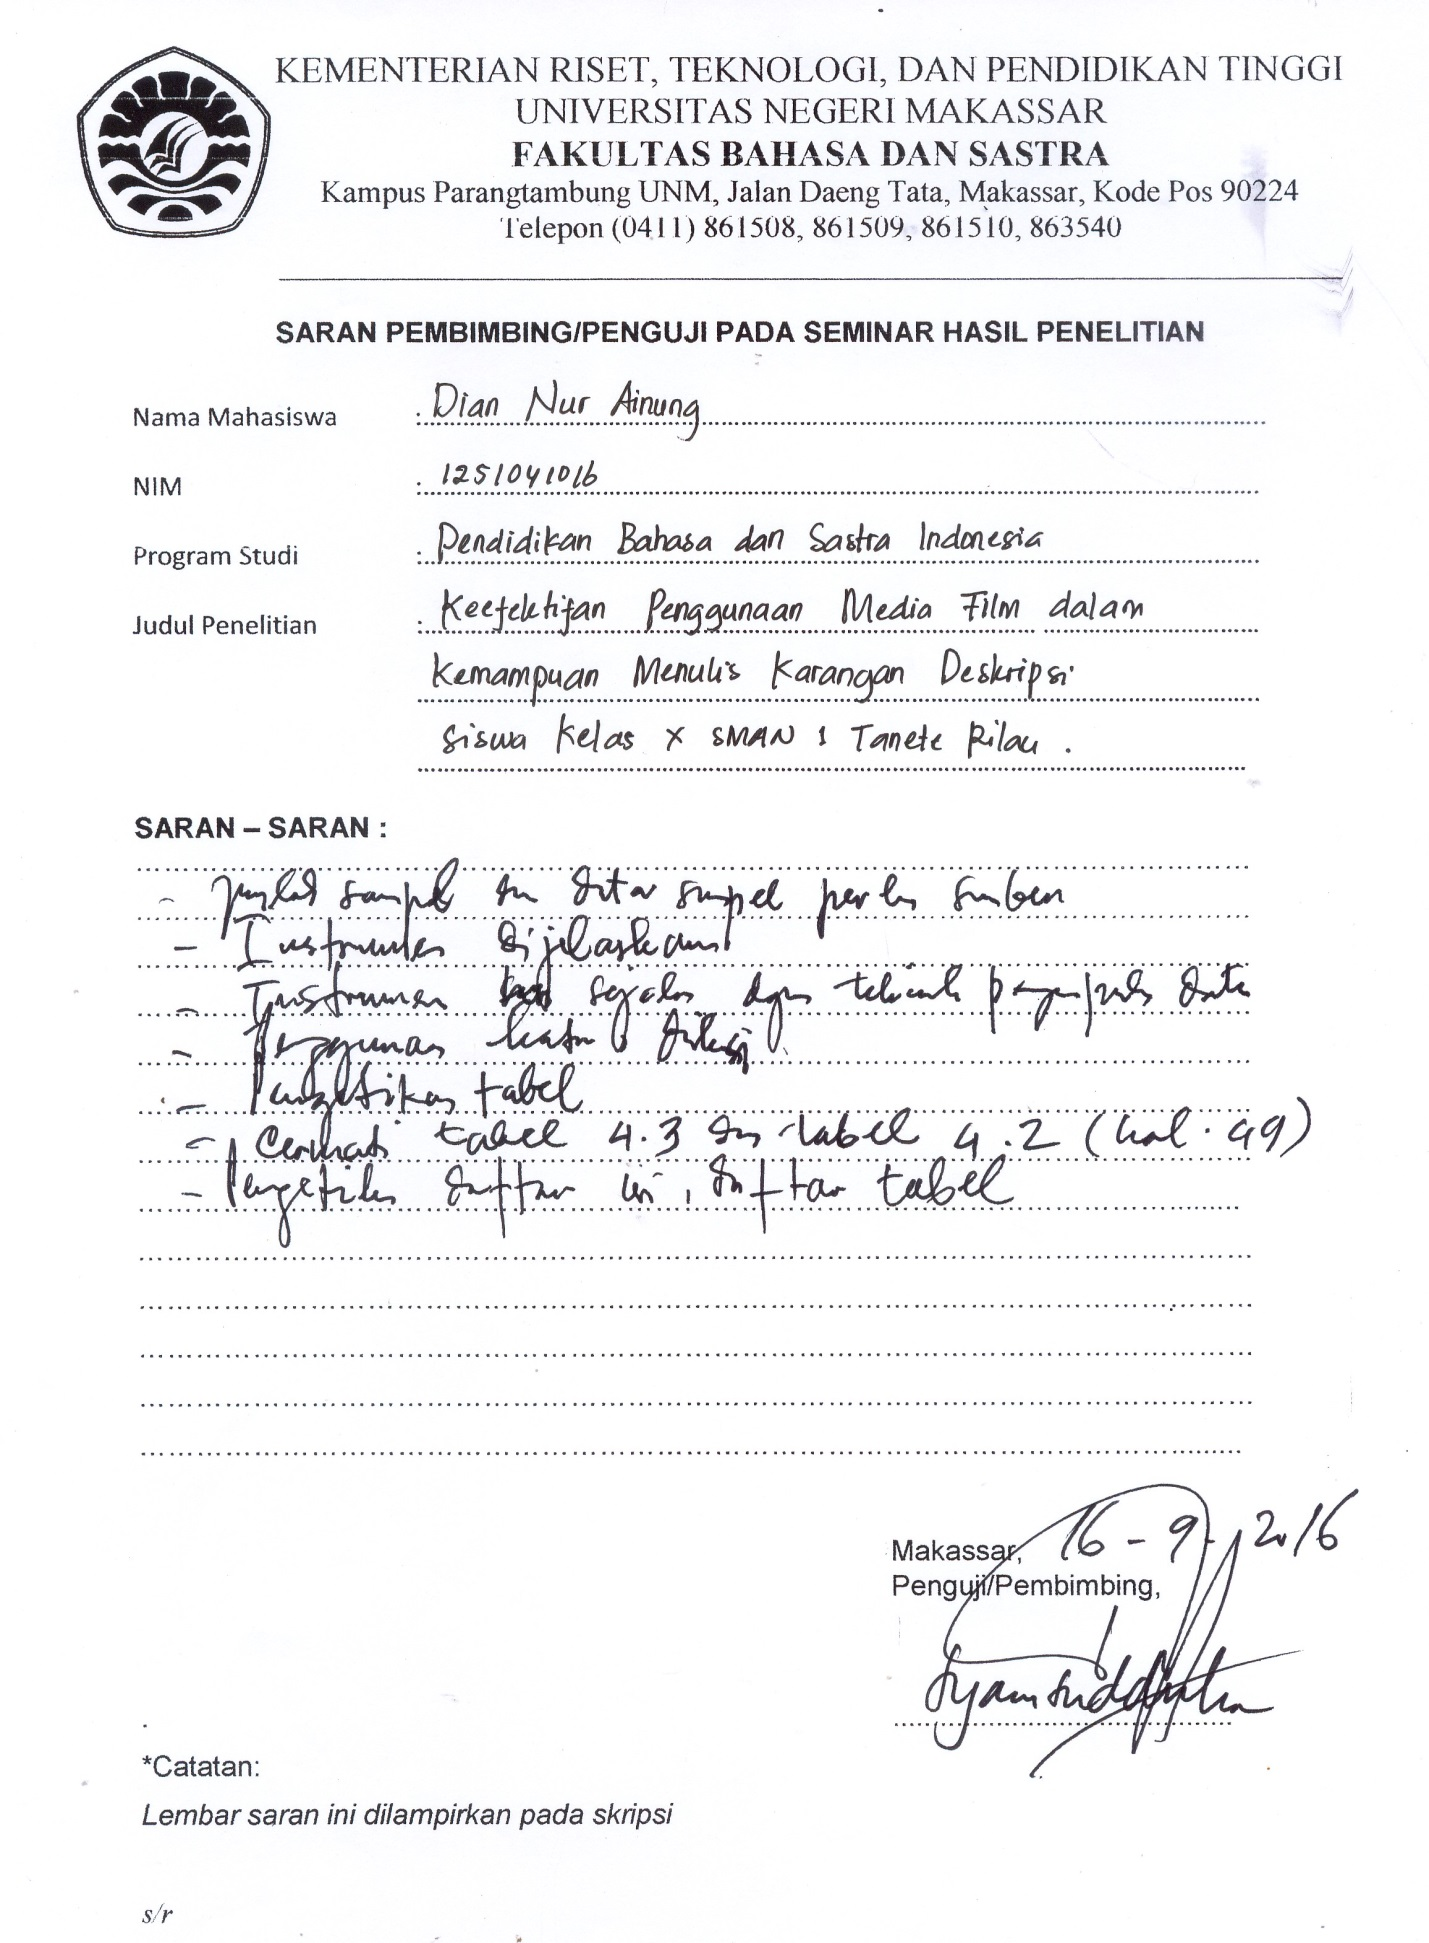 KEMENTERIAN RISET, TEKNOLOGI, DAN PENDIDIKAN TINGGI
UNIVERSITAS NEGERI MAKASSAR
FAKULTAS BAHASA DAN SASTRA
Kampus Parangtambung UNM, Jalan Daeng Tata, Makassar, Kode Pos 90224
Telepon (0411) 861508, 861509, 861510, 863540
SARAN PEMBIMBING/PENGUJI PADA SEMINAR HASIL PENELITIAN
Nama Mahasiswa : Dian Nur Ainung
NIM : 1251041016
Program Studi : Pendidikan Bahasa dan Sastra Indonesia
Judul Penelitian : Keefektifan Penggunaan Media Film dalam
Kemampuan Menulis Karangan Deskripsi
Siswa Kelas X SMAN 1 Tanete Rilau.
SARAN – SARAN :
- sampel
- Instrumen dijelaskan
- Instrumen sejalan data
- Penggunaan kata
- Pengetikan tabel
- Cermati tabel 4.3 dan tabel 4.2 (hal. 49)
- Pengetikan daftar isi, daftar tabel
Makassar, 16-9-2016
Penguji/Pembimbing,
*Catatan:
Lembar saran ini dilampirkan pada skripsi
s/r